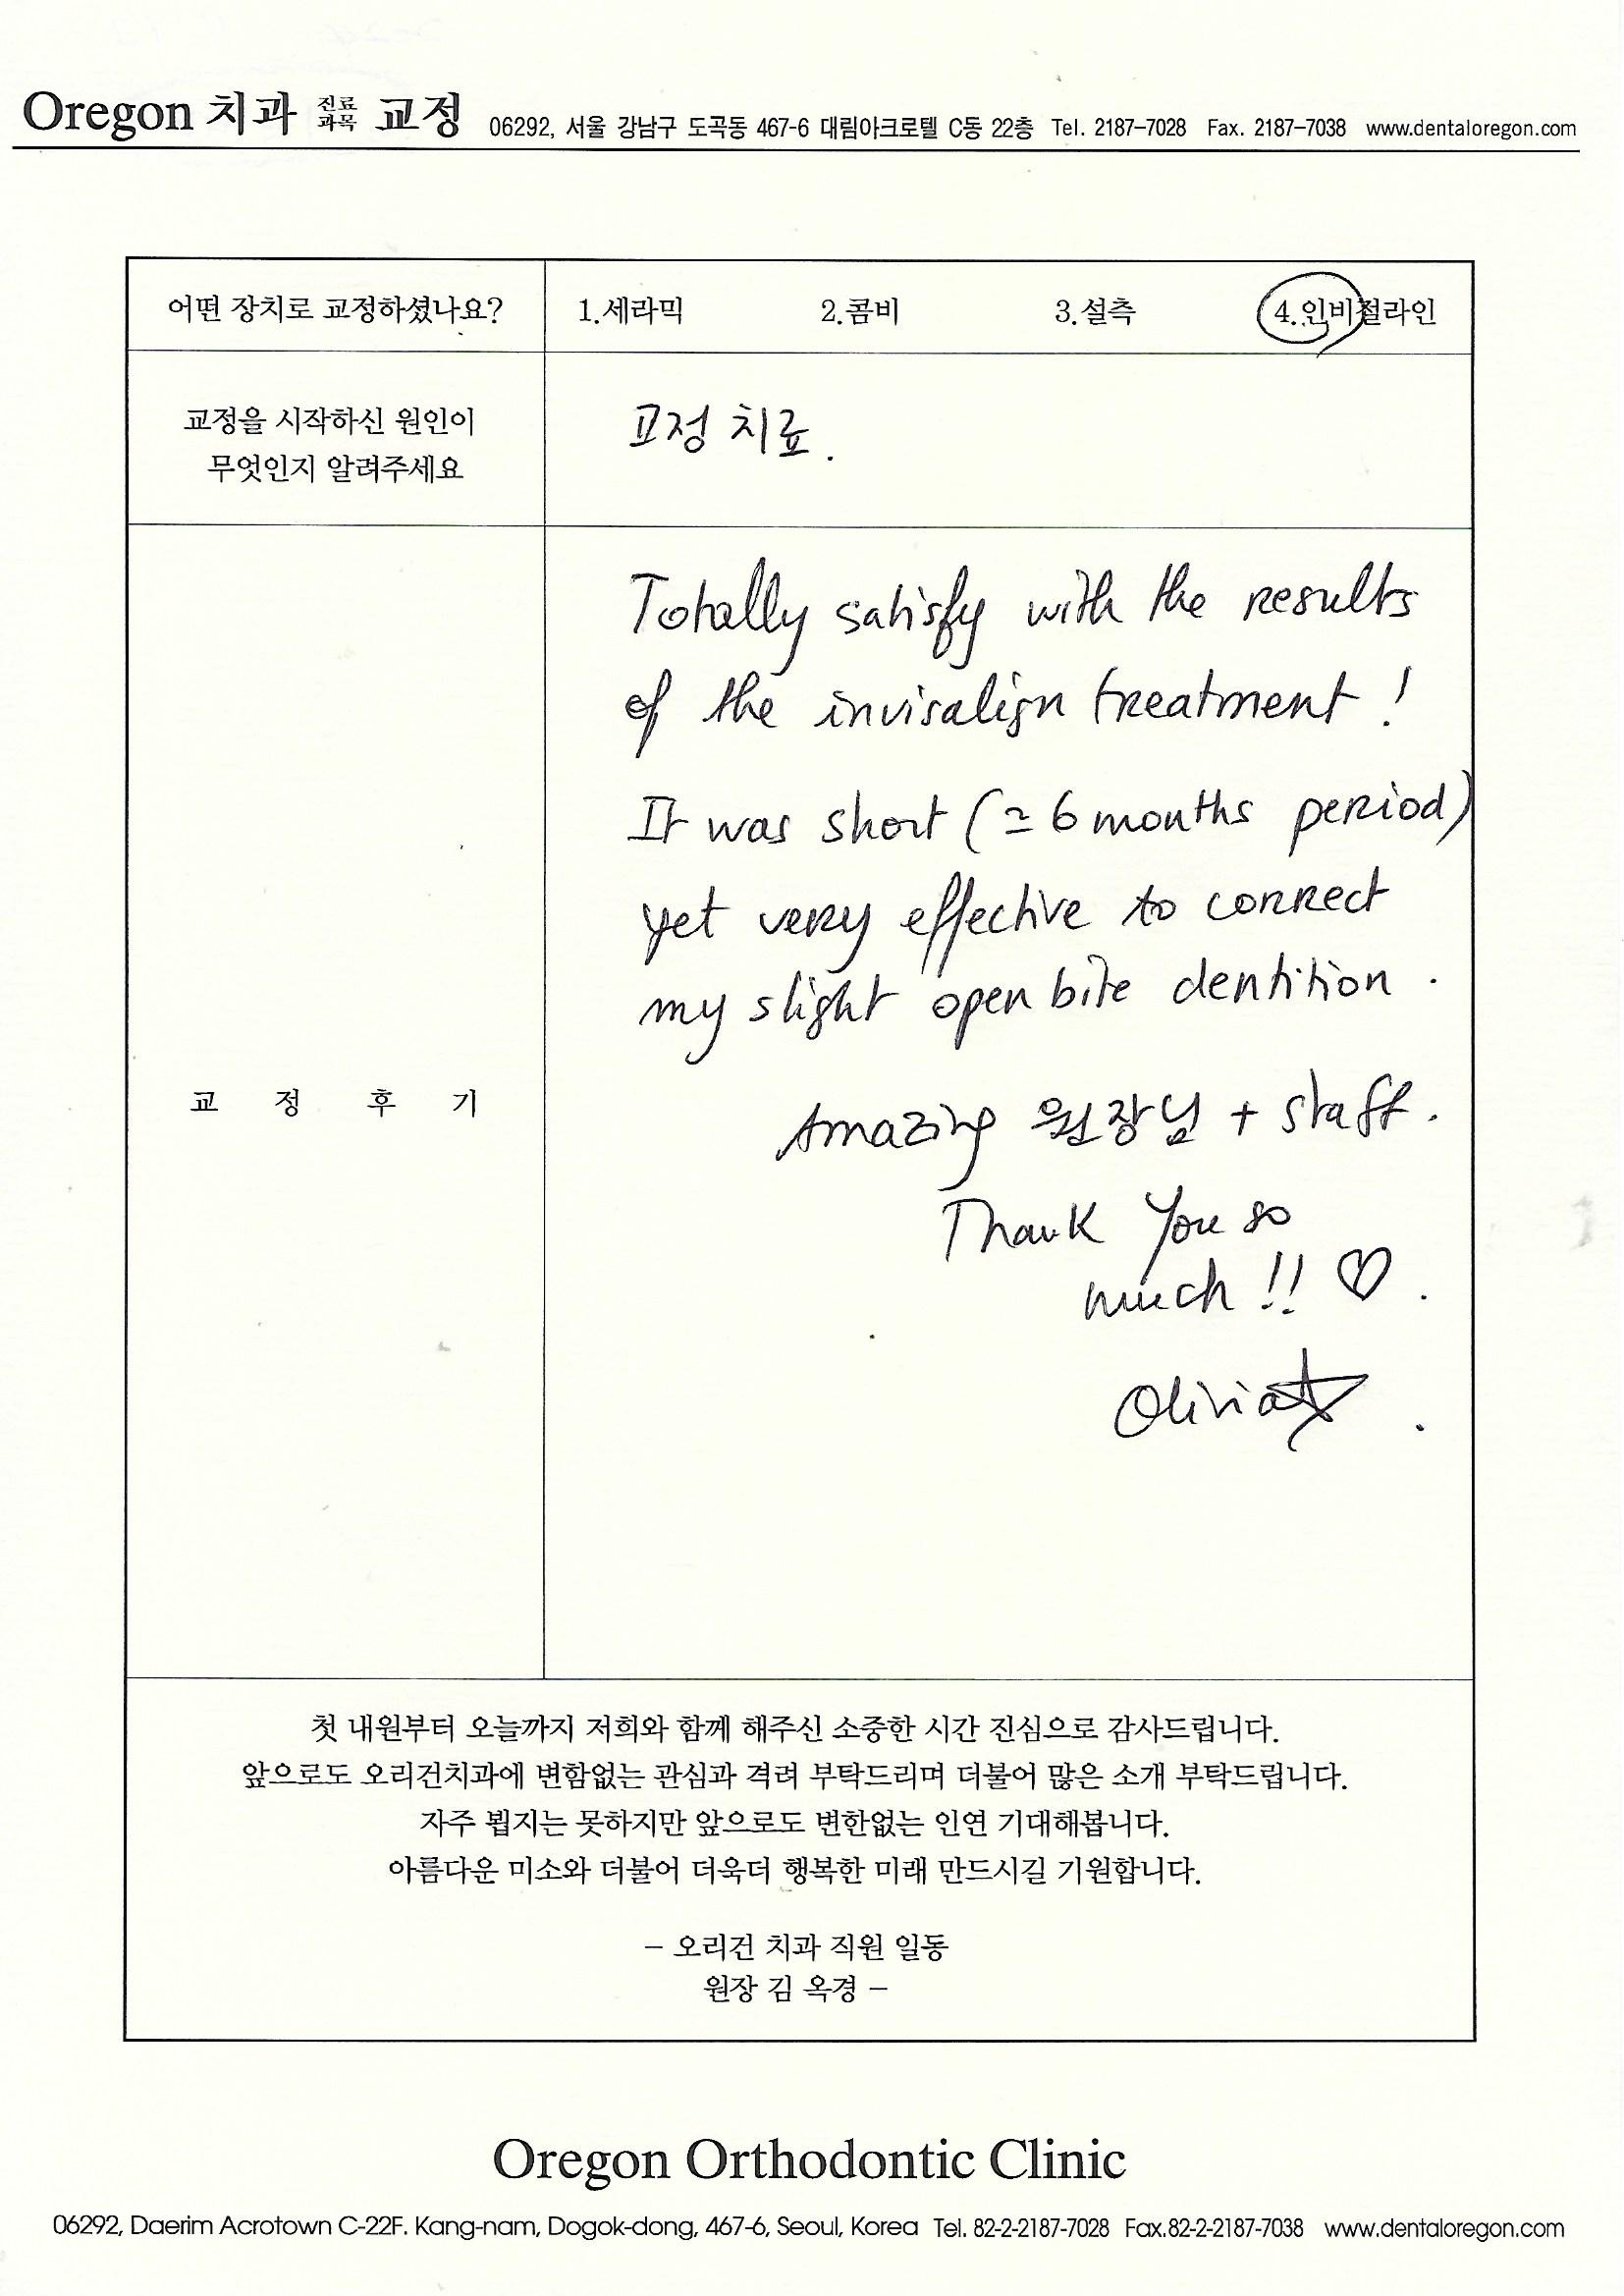 Oregon 치과 진료과목 교정 06292, 서울 강남구 도곡동 467-6 대림아크로텔 C동 22층 Tel. 2187-7028 Fax. 2187-7038 www.dentaloregon.com
어떤 장치로 교정하셨나요? 1.세라믹 2.콤비 3.설측 4.인비절라인
교정을 시작하신 원인이
무엇인지 알려주세요
교정 치료.
교 정 후 기
Totally satisfy with the results
of the invisalign treatment !
It was short (≃ 6 months period)
yet very effective to correct
my slight open bite dentition .
Amazing 원장님 + staff .
Thank You so
much !! ♡ .
Olivia☆ .
첫 내원부터 오늘까지 저희와 함께 해주신 소중한 시간 진심으로 감사드립니다.
앞으로도 오리건치과에 변함없는 관심과 격려 부탁드리며 더불어 많은 소개 부탁드립니다.
자주 뵙지는 못하지만 앞으로도 변한없는 인연 기대해봅니다.
아름다운 미소와 더불어 더욱더 행복한 미래 만드시길 기원합니다.
– 오리건 치과 직원 일동
원장 김 옥경 –
Oregon Orthodontic Clinic
06292, Daerim Acrotown C-22F. Kang-nam, Dogok-dong, 467-6, Seoul, Korea Tel. 82-2-2187-7028 Fax.82-2-2187-7038 www.dentaloregon.com